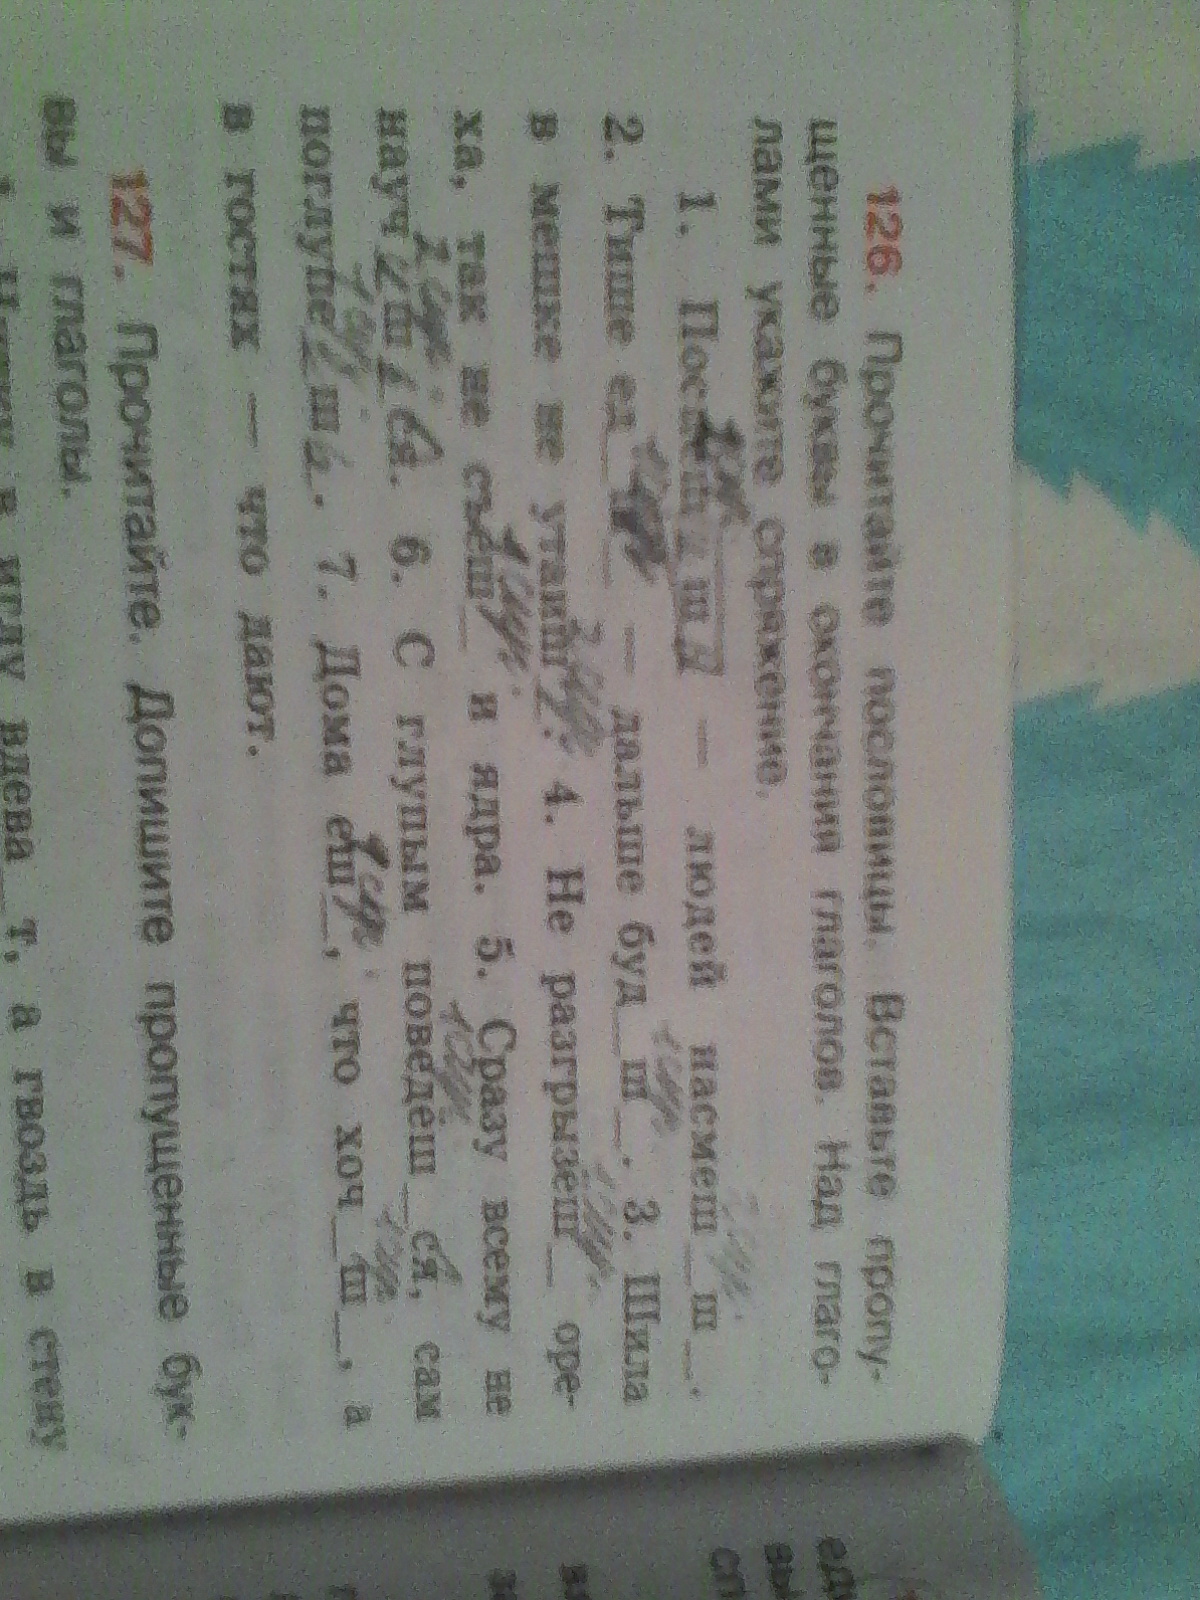 126. Прочитайте пословицы. Вставьте пропу-
щенные буквы в окончания глаголов. Над глаго-
лами укажите спряжение.
1. Поспешишь — людей насмеш_ш_.
2. Тише ед_ — дальше буд_ш_. 3. Шила
в мешке не утаишь. 4. Не разгрызеш_ оре-
ха, так не съеш_ и ядра. 5. Сразу всему не
научишься. 6. С глупым поведеш_ся, сам
поглупеешь. 7. Дома еш_, что хоч_ш_, а
в гостях — что дают.
127. Прочитайте. Допишите пропущенные бук-
вы и глаголы.
вдева_т, а гвоздь в стену